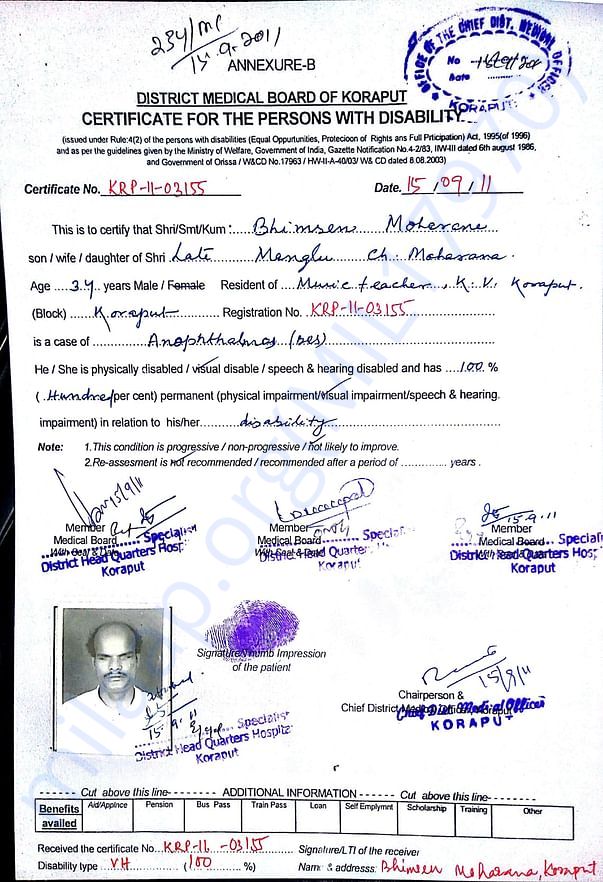 234/MP
15.9.2011
ANNEXURE-B
OFFICE OF THE CHIEF DIST. MEDICAL OFFICER
No
Date
KORAPUT
DISTRICT MEDICAL BOARD OF KORAPUT
CERTIFICATE FOR THE PERSONS WITH DISABILITY
(issued under Rule:4(2) of the persons with disabilities (Equal Oppurtunities, Protecioon of Rights ans Full Prticipation) Act, 1995(of 1996)
and as per the guidelines given by the Ministry of Welfare, Government of India, Gazette Notification No.4-2/83, IIW-III dated 6th august 1986,
and Government of Orissa / W&CD No.17963 / HW-II-A-40/03/ W& CD dated 8.08.2003)
Certificate No. KRP-11-03155 Date. 15/09/11
This is to certify that Shri/Smt/Kum : Bhimsen Moharana
son / wife / daughter of Shri Late Manglu Ch. Moharana.
Age 34 years Male / Female Resident of Music teacher, K.V, Koraput.
(Block) Koraput Registration No. KRP-11-03155
is a case of Anophthalmos (BES)
He / She is physically disabled / visual disable / speech & hearing disabled and has 100 %
( Hundred per cent) permanent (physical impairment/visual impairment/speech & hearing.
impairment) in relation to his/her disability
Note: 1.This condition is progressive / non-progressive / not likely to improve.
2.Re-assesment is not recommended / recommended after a period of .............. years .
15/9/11
15.9.11
Member Member Member
Medical Board Medical Board Medical Board
With Seal & Date With Seal & Date With Seal & Date
Specialist Specialist Specialist
District Head Quarters Hospital District Head Quarters Hospital District Head Quarters Hospital
Koraput Koraput Koraput
Signature/Thumb Impression
of the patient
15/9/11
Chairperson &
Chief District Medical Officer, Koraput
Chief Dist. Medical Officer
KORAPUT
Attested
15.9.11
Specialist
District Head Quarters Hospital
Koraput
Cut above this line ADDITIONAL INFORMATION Cut above this line
Benefits availed Aid/Applnce Pension Bus Pass Train Pass Loan Self Emplymnt Scholarship Training Other
Received the certificate No. KRP-11-03155 Signature/LTI of the receiver
Disability type VH (100 %) Name & addresss: Bhimsen Moharana, Koraput
milaap.org/MIL179707